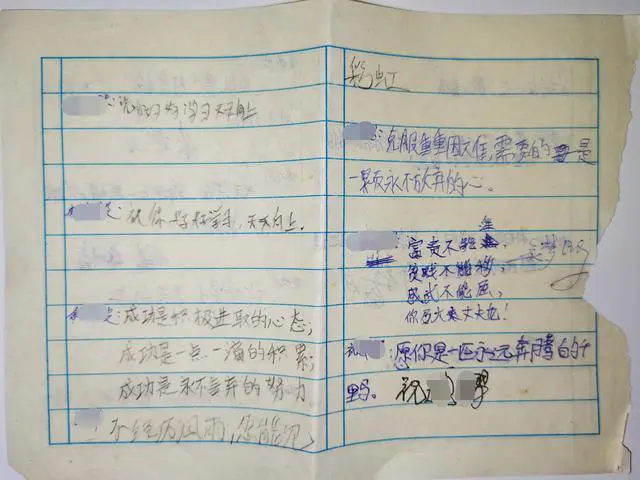 祝好好学习天天向上
祝你好好学习,天天向上.
成功是积极进取的心态;
成功是一点一滴的积累;
成功是永不言弃的努力
不经历风雨,怎能见
彩虹
克服重重困难需要的是
一颗永不放弃的心。
富贵不能淫
贫贱不能移,
威武不能屈,
你乃大丈夫也!
愿你是一匹永远奔腾的千
里马。祝